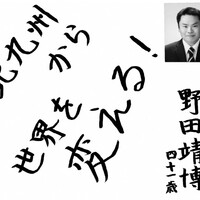 北九州から
世界を
変える！
野田靖博
四十一歳